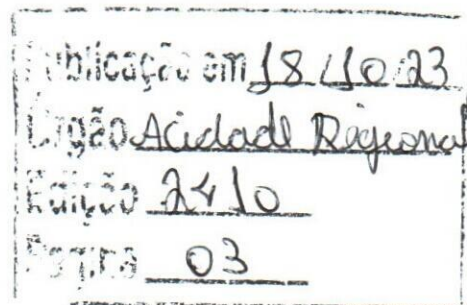 Publicação em 18/10/23
Órgão A cidade Regional
Edição 2410
Pagina 03